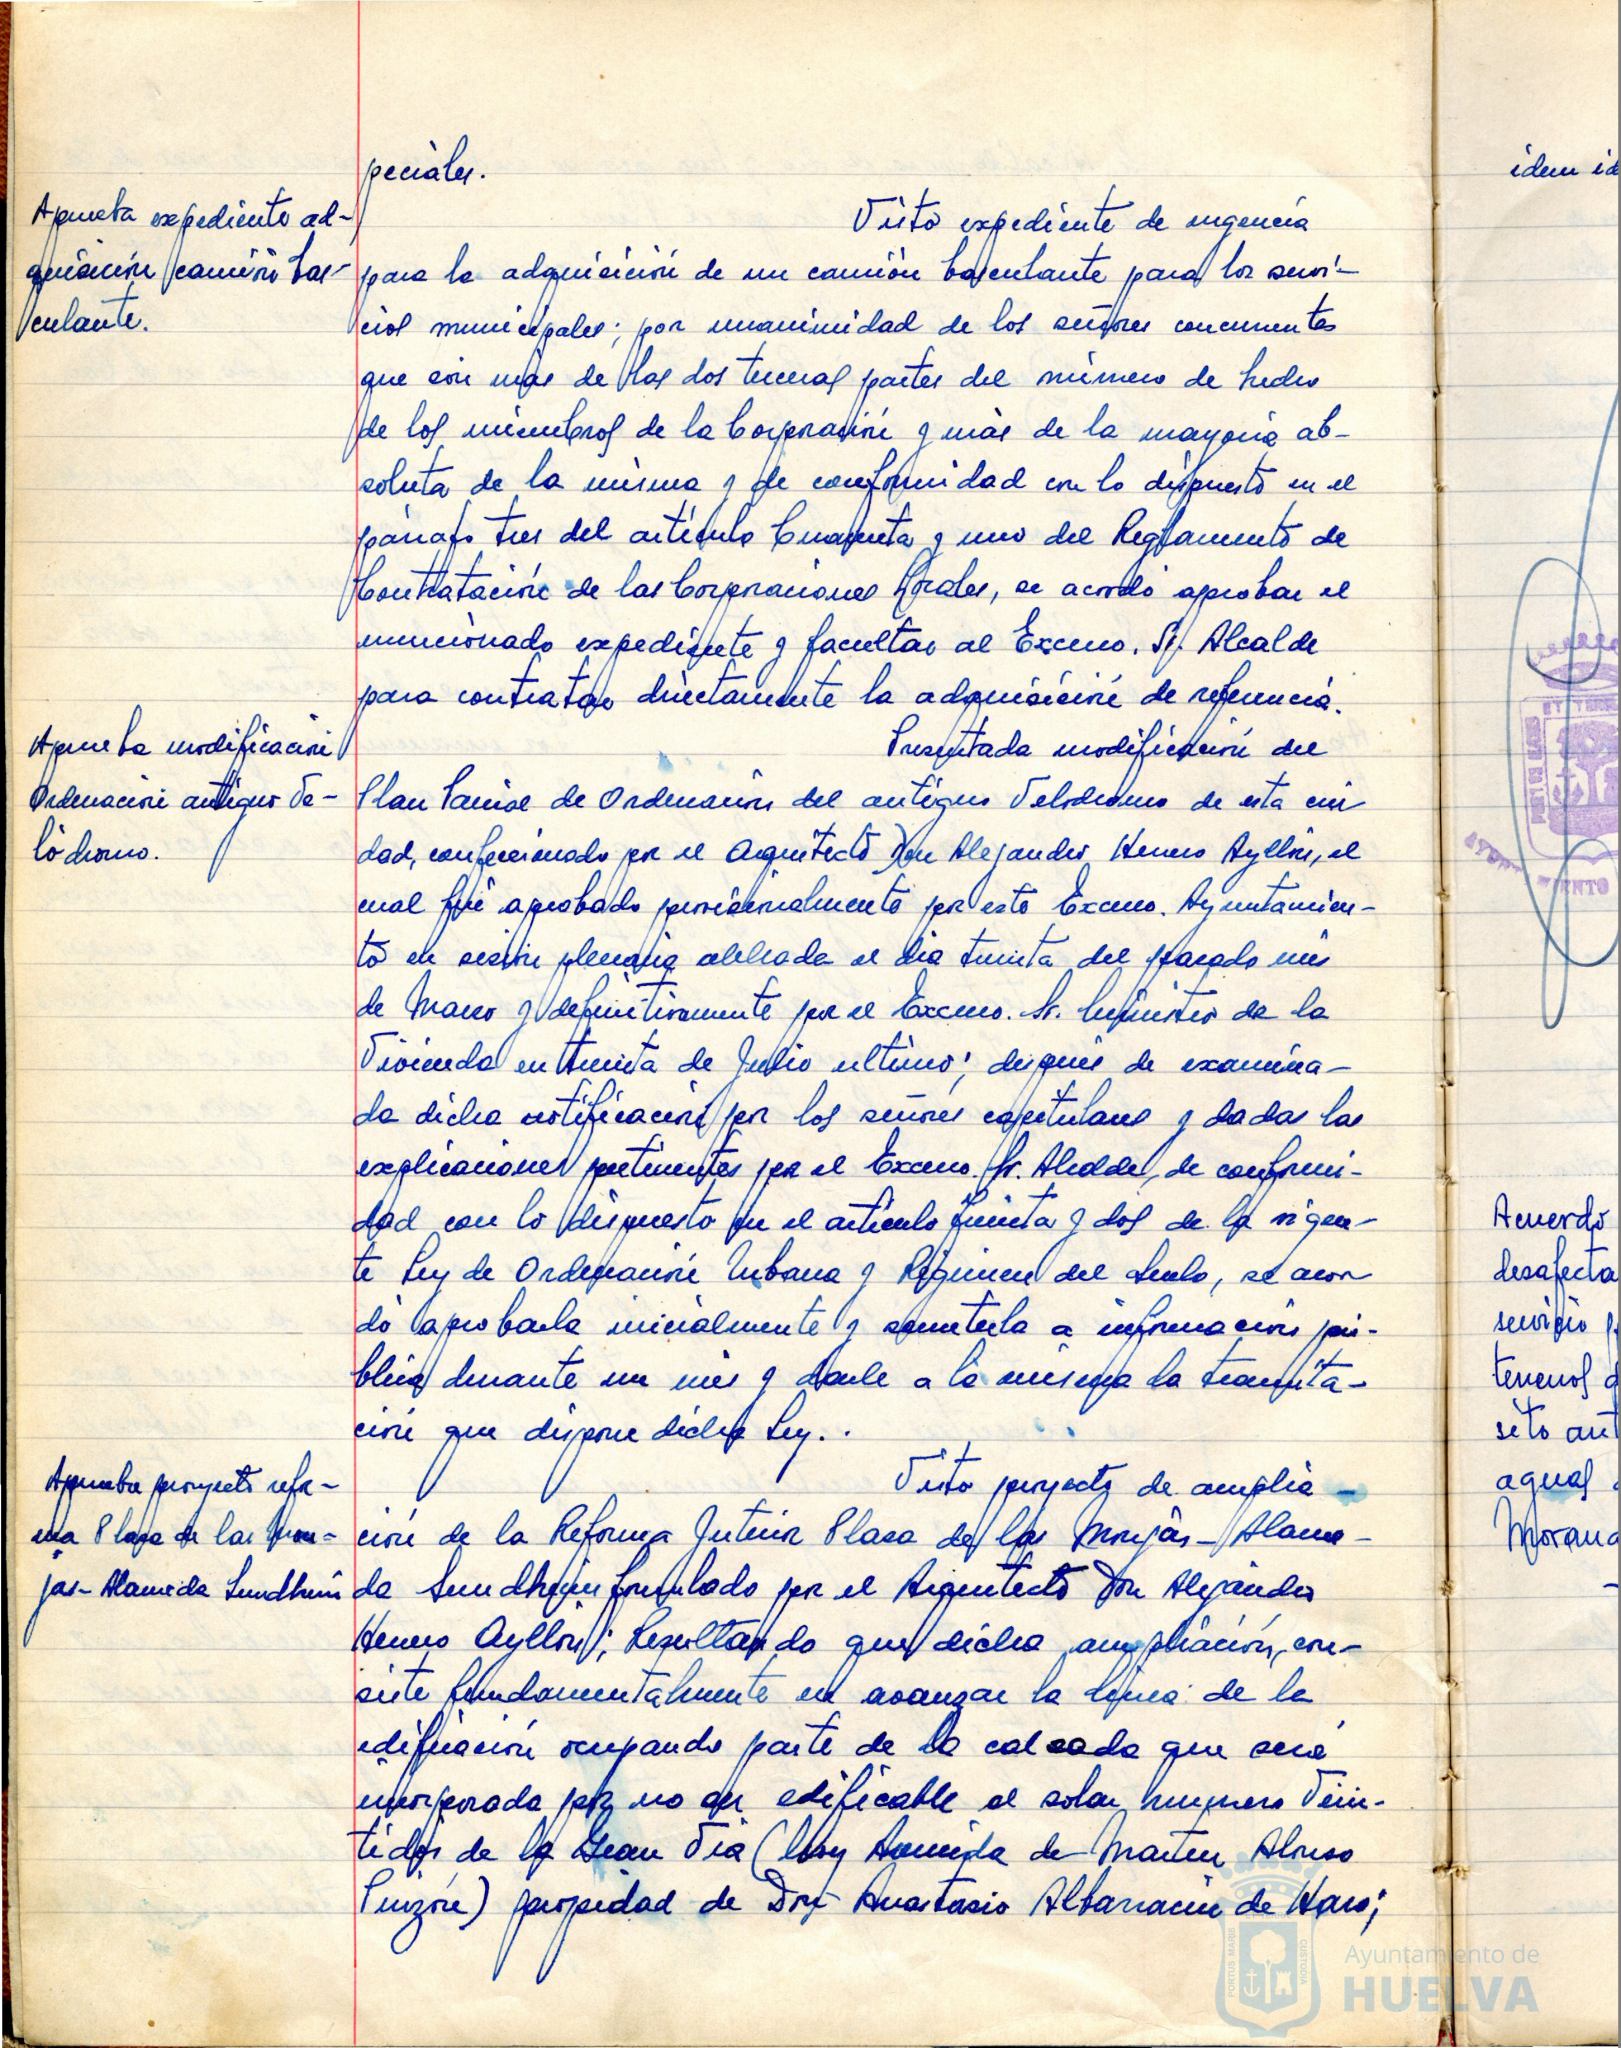 peciales.
Aprueba expediente ad-
quisición camión bas-
culante.
Visto expediente de urgencia
para la adquisición de un camión basculante para los servi-
cios municipales; por unanimidad de los señores concurrentes
que son más de las dos terceras partes del número de hecho
de los miembros de la Corporación y más de la mayoría ab-
soluta de la misma y de conformidad con lo dispuesto en el
párrafo tres del artículo Cuarenta y uno del Reglamento de
Contratación de las Corporaciones Locales, se acordó aprobar el
mencionado expediente y facultar al Excmo. Sr. Alcalde
para contratar directamente la adquisición de referencia.
Aprueba modificación
Ordenación antiguo Ve-
lódromo.
Presentada modificación del
Plan Parcial de Ordenación del antiguo Velodromo de esta ciu
dad, confeccionado por el Arquitecto Don Alejandro Herrero Ayllón, el
cual fué aprobado provisionalmente por este Excmo. Ayuntamien-
to en sesión plenaria celebrada el día treinta del pasado mes
de Marzo y definitivamente por el Excmo. Sr. Ministro de la
Vivienda en treinta de Julio ultimo; después de examina-
da dicha notificación por los señores capitulares y dadas las
explicaciones pertinentes por el Excmo. Sr. Alcalde, de conformi-
dad con lo dispuesto en el artículo treinta y dos de la vigen-
te Ley de Ordenación Urbana y Régimen del Suelo, se acor
dó aprobarla inicialmente y someterla a información pú-
blica durante un mes y darle a la misma la tramita-
ción que dispone dicha Ley..
Aprueba proyecto refor-
ma Plaza de las Mon-
jas-Alameda Sundheim
Visto proyecto de amplia-
ción de la Reforma Interior Plaza de las Monjas-Alame-
da Sundheim formulado por el Arquitecto Don Alejandro
Herrero Ayllón; Resultando que dicha ampliación, con-
siste fundamentalmente en avanzar la línea de la
edificación ocupando parte de la calzada que será
incorporada por no ser edificable al solar numero Vein-
tidós de la Gran Vía (hoy Avenida de Martin Alonso
Pinzón) propiedad de Don Anastasio Albarracin de Haro;
idem id
AYUNTAMIENTO
Acuerdo
desafecta
servicio p
terrenos d
sito ant
aguas
Morana
Ayuntamiento de
HUELVA
PORTUS MARIS
CUSTODIA